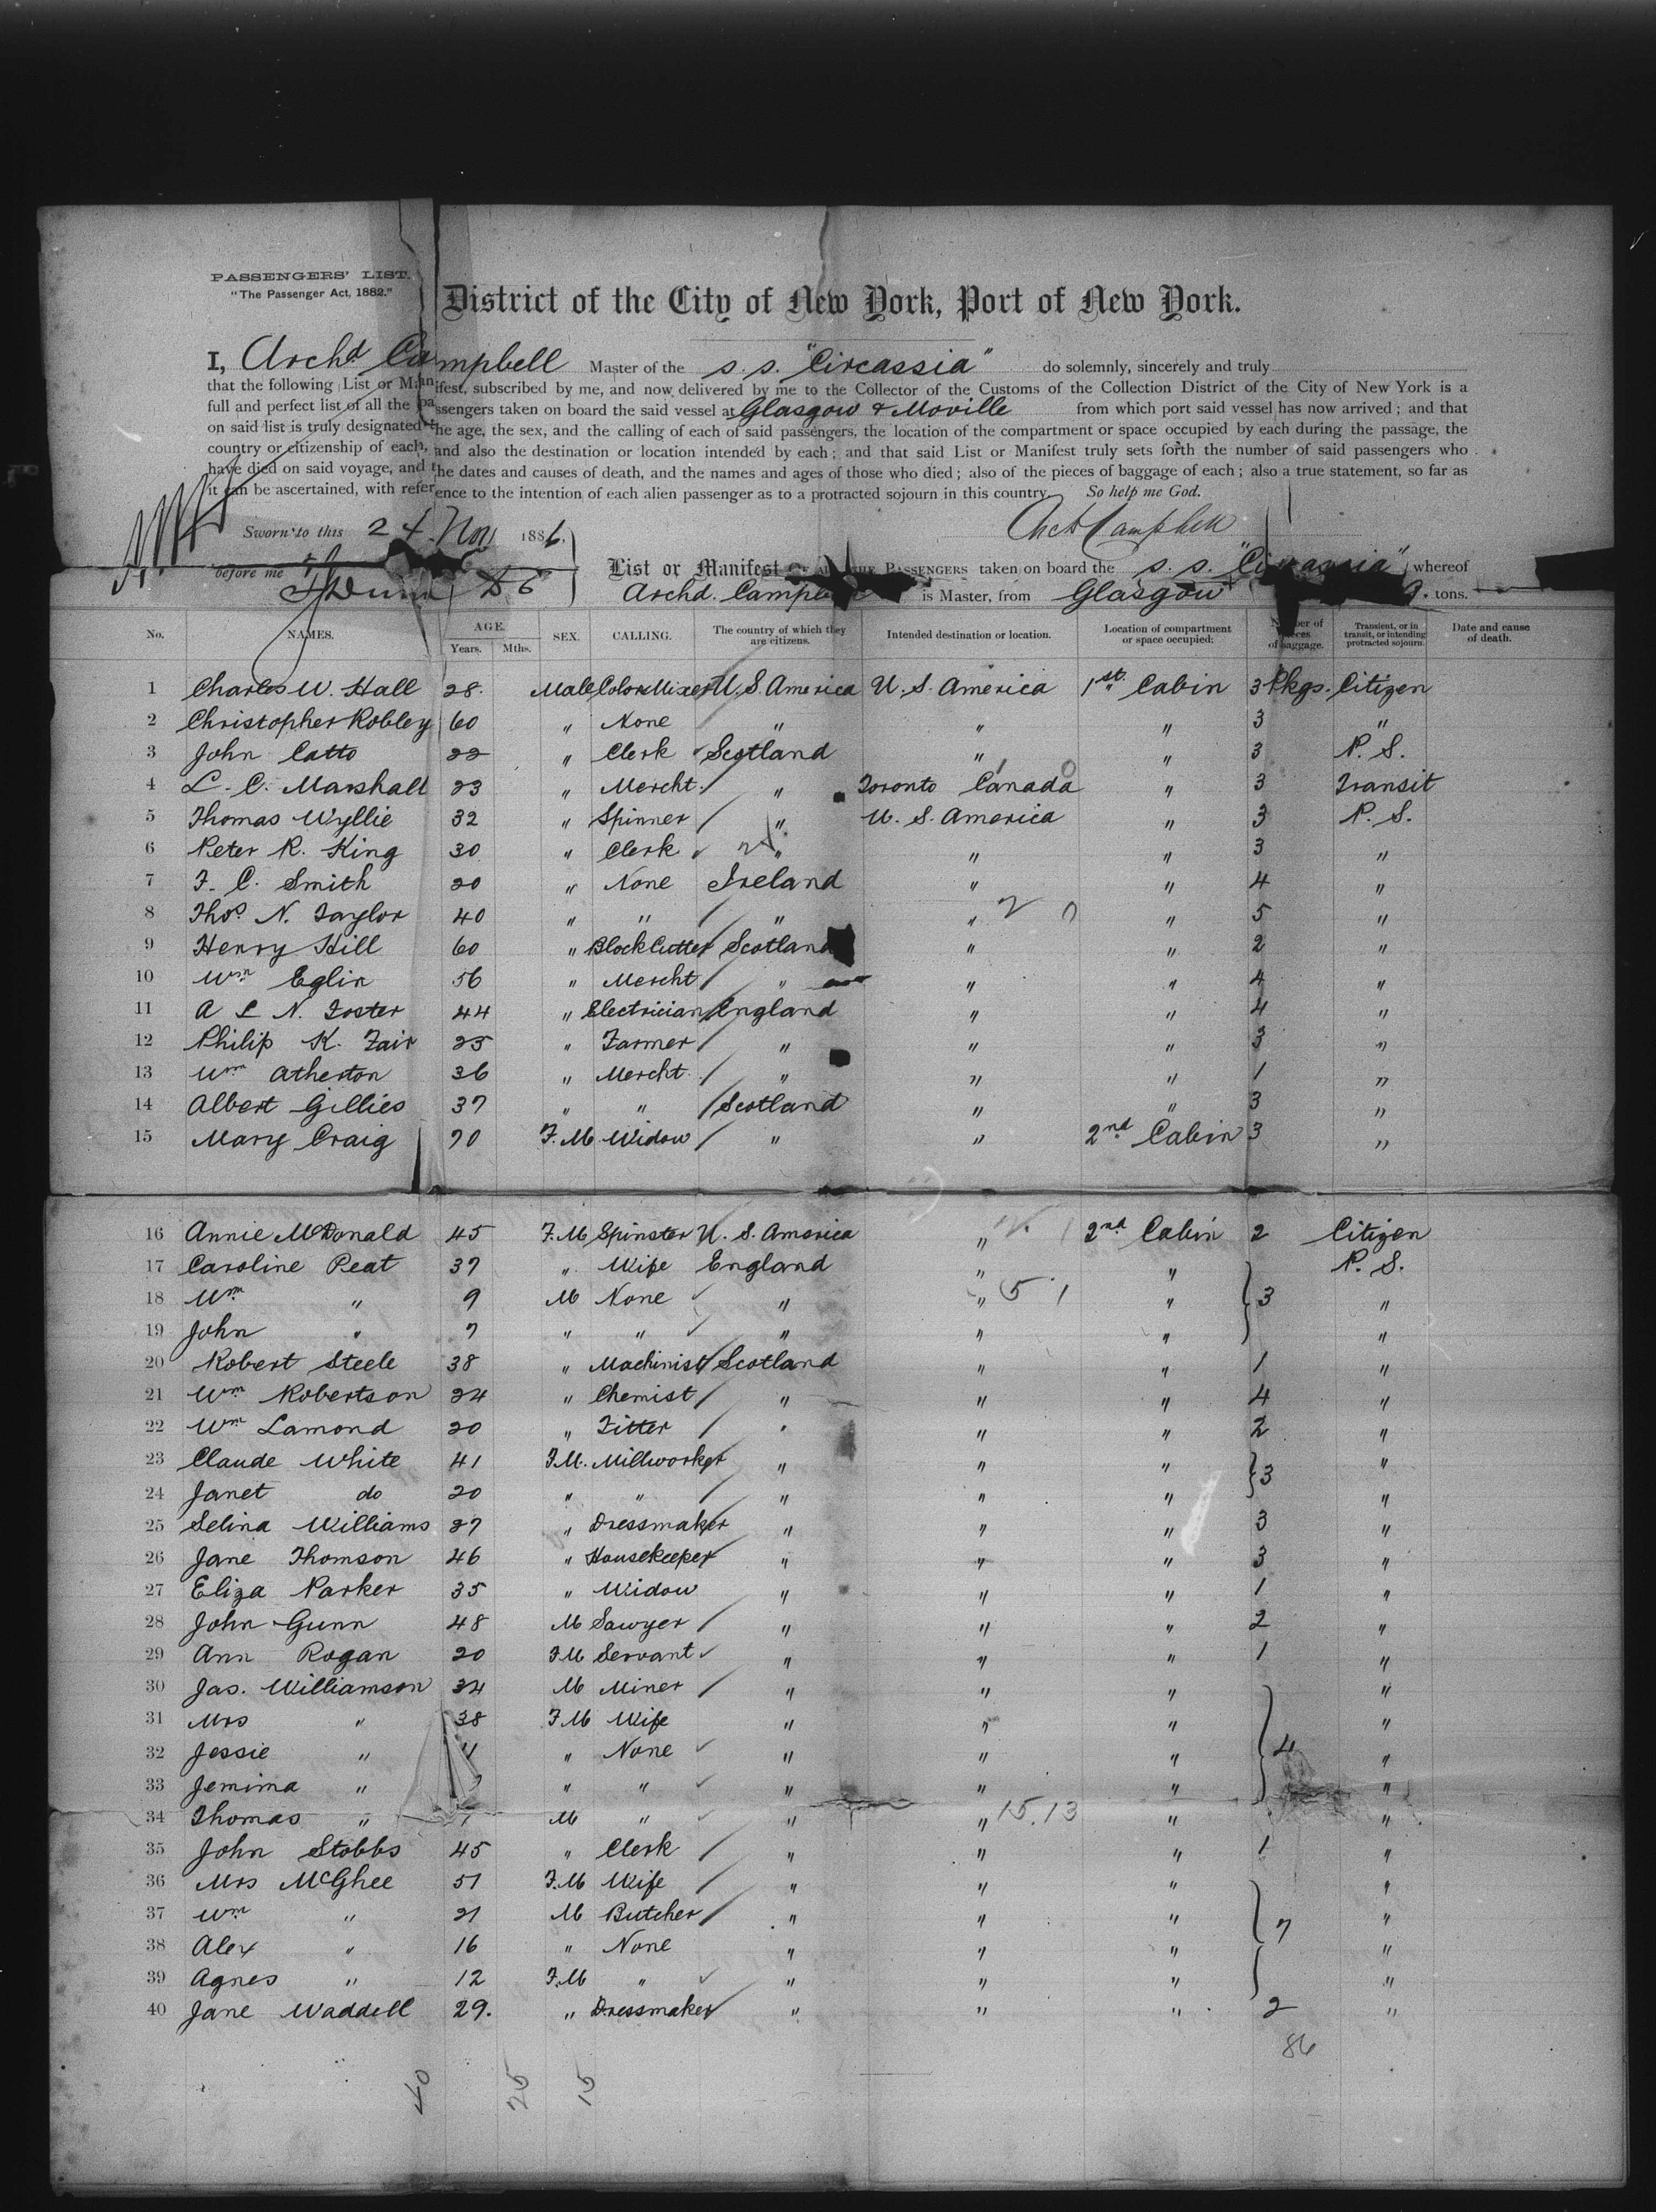 PASSENGERS' LIST.
"The Passenger Act, 1882."
District of the City of New York, Port of New York.
I, Archd Campbell Master of the s.s. "Circassia" do solemnly, sincerely and truly
that the following List or Manifest, subscribed by me, and now delivered by me to the Collector of the Customs of the Collection District of the City of New York is a
full and perfect list of all the passengers taken on board the said vessel at Glasgow & Moville from which port said vessel has now arrived; and that
on said list is truly designated the age, the sex, and the calling of each of said passengers, the location of the compartment or space occupied by each during the passage, the
country or citizenship of each, and also the destination or location intended by each; and that said List or Manifest truly sets forth the number of said passengers who
have died on said voyage, and the dates and causes of death, and the names and ages of those who died; also of the pieces of baggage of each; also a true statement, so far as
it can be ascertained, with reference to the intention of each alien passenger as to a protracted sojourn in this country. So help me God.
Archd Campbell
Sworn to this 24 Nov 1886.
before me
List or Manifest OF ALL THE PASSENGERS taken on board the s.s. "Circassia" whereof
Archd. Campbell is Master, from Glasgow tons.
No. NAMES. AGE. Years. Mths. SEX. CALLING. The country of which they are citizens. Intended destination or location. Location of compartment or space occupied. Number of pieces of baggage. Transient, or in transit, or intending protracted sojourn. Date and cause of death.
1 Charles W. Hall 28. Male Color Mixer U.S. America U.S. America 1st Cabin 3 Pkgs. Citizen
2 Christopher Robley 60 " None " " " 3 "
3 John Catto 22 " Clerk Scotland " " 3 P.S.
4 L. C. Marshall 23 " Mercht. " Toronto Canada " 3 Transit
5 Thomas Wyllie 32 " Spinner " U.S. America " 3 P.S.
6 Peter R. King 30 " Clerk " " " 3 "
7 F. C. Smith 20 " None Ireland " " 4 "
8 Thos N. Taylor 40 " " " " " 5 "
9 Henry Hill 60 " Block Cutter Scotland " " 2 "
10 Wm Eglin 56 " Mercht " " " 4 "
11 A L N. Foster 44 " Electrician England " " 4 "
12 Philip K. Fair 25 " Farmer " " " 3 "
13 Wm Atherton 36 " Mercht. " " " 1 "
14 Albert Gillies 37 " " Scotland " " 3 "
15 Mary Craig 70 F.M Widow " " 2nd Cabin 3 "
16 Annie McDonald 45 F.M Spinster U.S. America " 2nd Cabin 2 Citizen
17 Caroline Peat 37 " Wife England " " P.S.
18 Wm " 9 M None " " " 3 "
19 John " 7 " " " " " "
20 Robert Steele 38 " Machinist Scotland " " 1 "
21 Wm Robertson 24 " Chemist " " " 4 "
22 Wm Lamond 20 " Fitter " " " 2 "
23 Claude White 41 F.M. Millworker " " " 3 "
24 Janet do 20 " " " " " "
25 Selina Williams 27 " Dressmaker " " " 3 "
26 Jane Thomson 46 " Housekeeper " " " 3 "
27 Eliza Parker 35 " Widow " " " 1 "
28 John Gunn 48 M Sawyer " " " 2 "
29 Ann Rogan 20 F.M Servant " " " 1 "
30 Jas. Williamson 34 M Miner " " " "
31 Mrs " 38 F.M Wife " " " "
32 Jessie " " None " " " 4 "
33 Jemima " " " " " " "
34 Thomas " M " " " " "
35 John Stobbs 45 " Clerk " " " 1 "
36 Mrs McGhee 51 F.M Wife " " " "
37 Wm " 21 M Butcher " " " 7 "
38 Alex " 16 " None " " " "
39 Agnes " 12 F.M " " " " "
40 Jane Waddell 29. " Dressmaker " " " 2 "
86
40 25 15